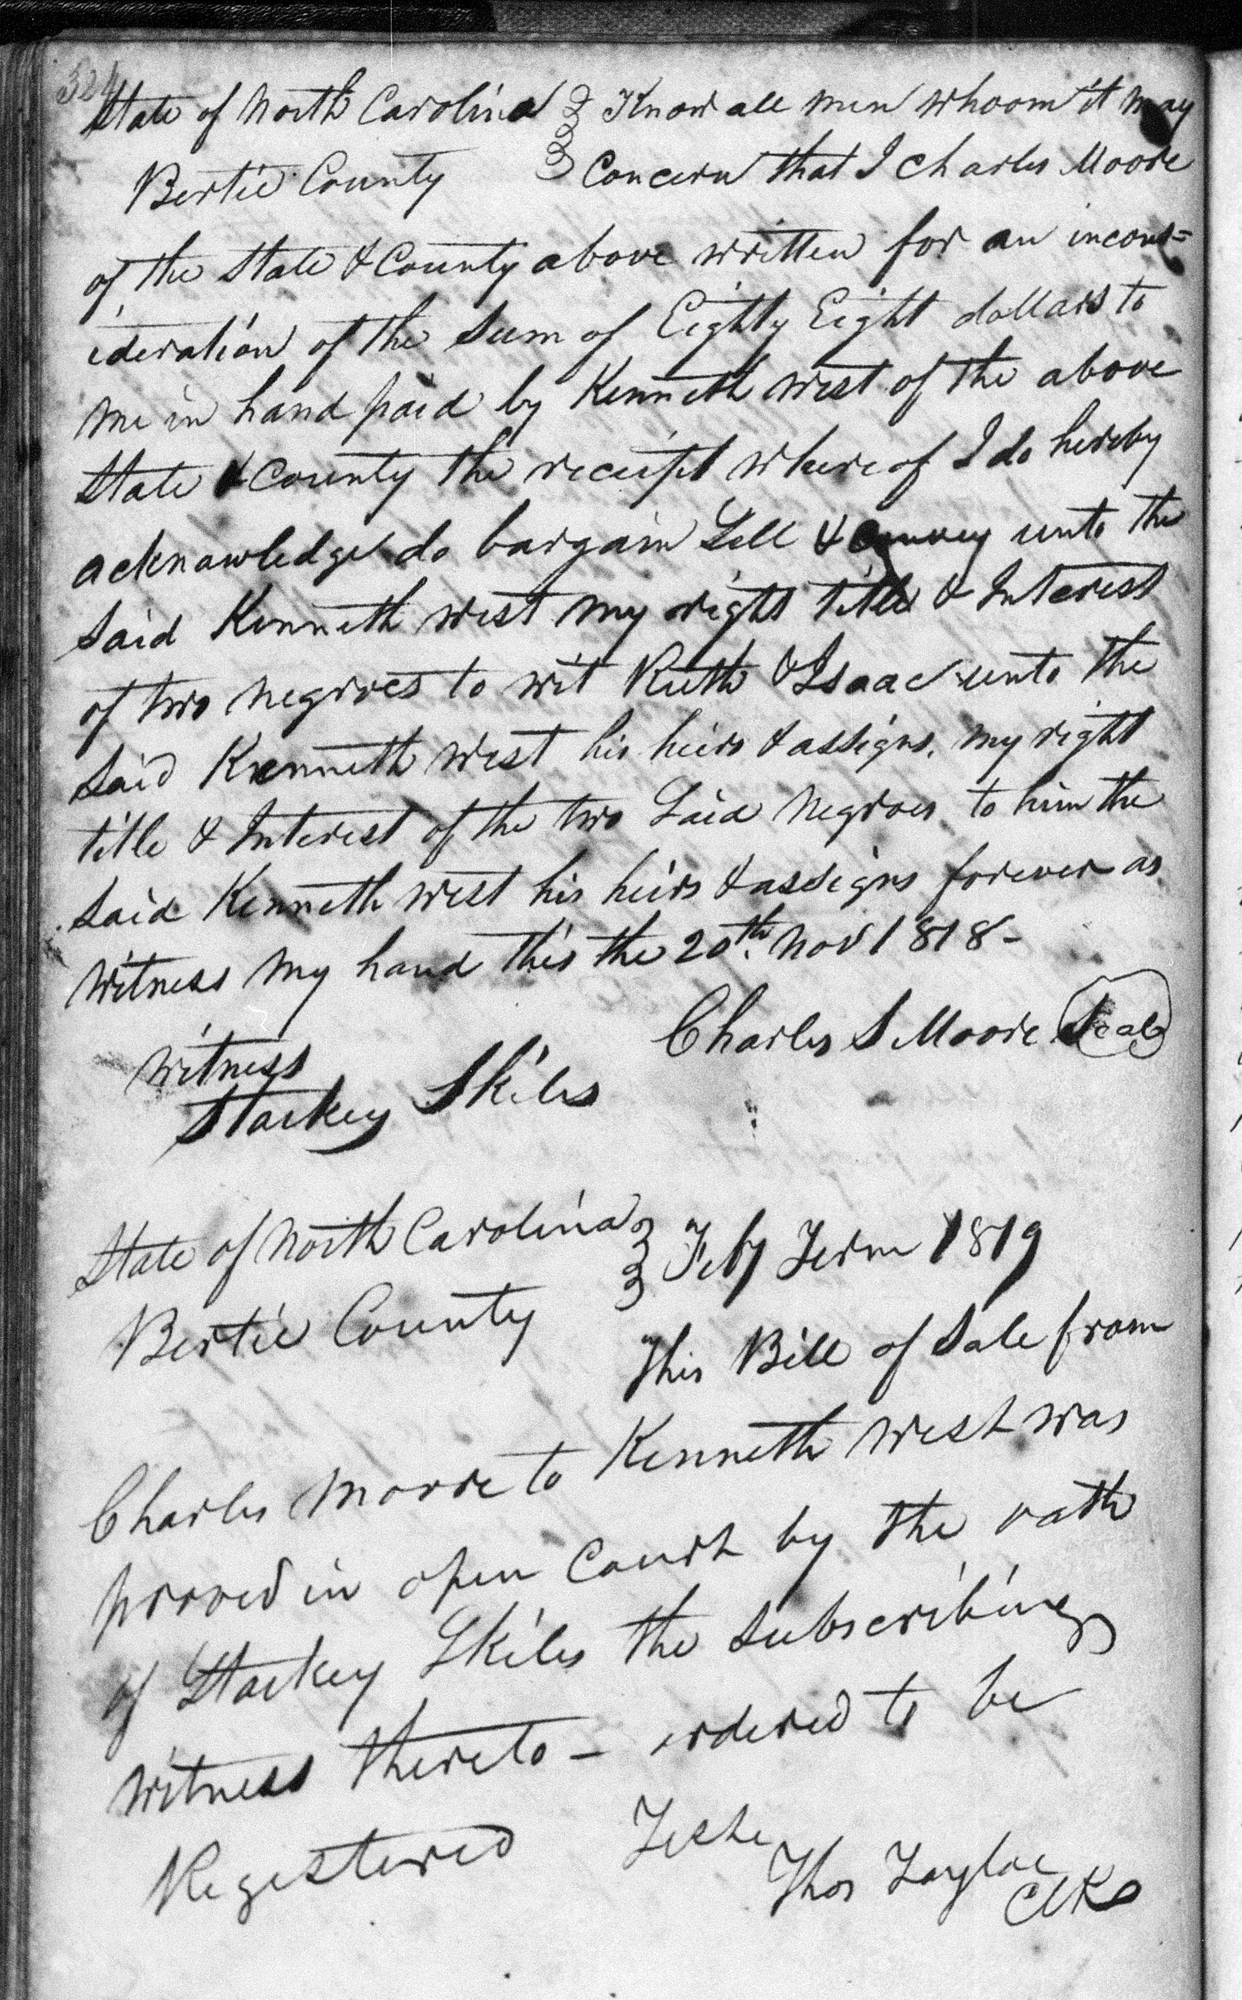 324
State of North Carolina } Know all men whoom it may
Bertie County } Concern that I Charles Moore
of the State & County above written for an incons=
ideration of the Sum of Eighty Eight dollars to
me in hand paid by Kenneth West of the above
State & County the receipt whereof I do hereby
acknowledge do bargain Sell & Convey unto the
Said Kenneth West my right title & Interest
of two negroes to wit Ruth & Isaac unto the
Said Kenneth West his heirs & assigns, my right
title & Interest of the two Said Negroes to him the
Said Kenneth West his heirs & assigns forever as
witness my hand this the 20th. Nov 1818-
Charles S Moore Seal
Witness
Starkey Skiles
State of North Carolina } Feby Term 1819
Bertie County }
This Bill of Sale from
Charles Moore to Kenneth West was
proved in open Court by the oath
of Starkey Skiles the Subscribing
witness thereto - ordered to be
Registered Teste
Thos Taylor
Clk